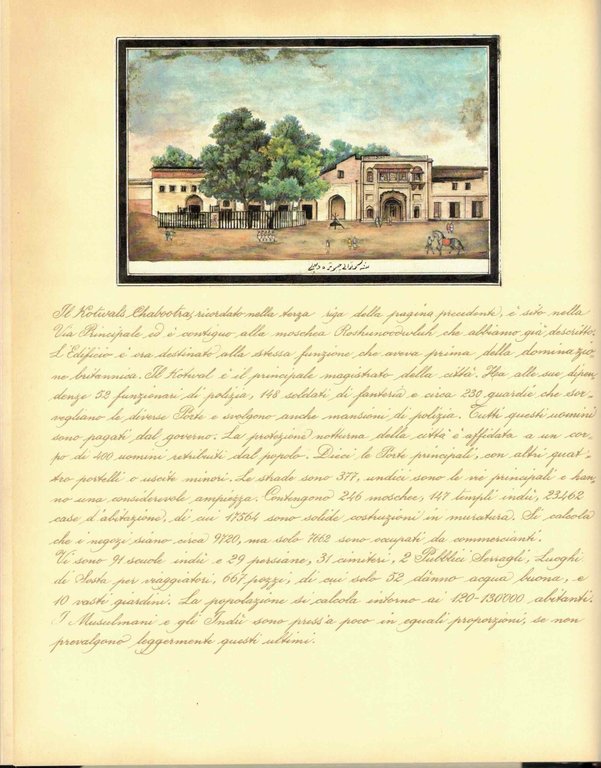 Il Kotwals Chabootra, ricordato nella terza riga della pagina precedente, è sito nella
Via Principale ed è contiguo alla moschea Roshunoodowluh che abbiamo già descritto.
L'Edificio è ora destinato alla stessa funzione che aveva prima della dominazio
ne britannica. Il Kotwal è il principale magistrato della città. Ha alle sue dipen
denze 52 funzionari di polizia, 148 soldati di fanteria e circa 230 guardie che sor
vegliano le diverse Porte e svolgono anche mansioni di polizia. Tutti questi uomini
sono pagati dal governo. La protezione notturna della città è affidata a un cor
po di 400 uomini retribuiti dal popolo. Dieci le Porte principali, con altri quat
tro portelli o uscite minori. Le strade sono 377, undici sono le vie principali e han
no una considerevole ampiezza. Contengono 246 moschee, 147 templi indù, 23462
case d'abitazione, di cui 17364 sono solide costruzioni in muratura. Si calcola
che i negozi siano circa 9720, ma solo 7662 sono occupati da commercianti.
Vi sono 91 scuole indù e 29 persiane, 31 cimiteri, 2 Pubblici Serragli, Luoghi
di Sosta per viaggiatori, 667 pozzi, di cui solo 52 danno acqua buona, e
10 vasti giardini. La popolazione si calcola intorno ai 120-130000 abitanti.
I Musulmani e gli Indù sono press'a poco in eguali proporzioni, se non
prevalgono leggermente questi ultimi.